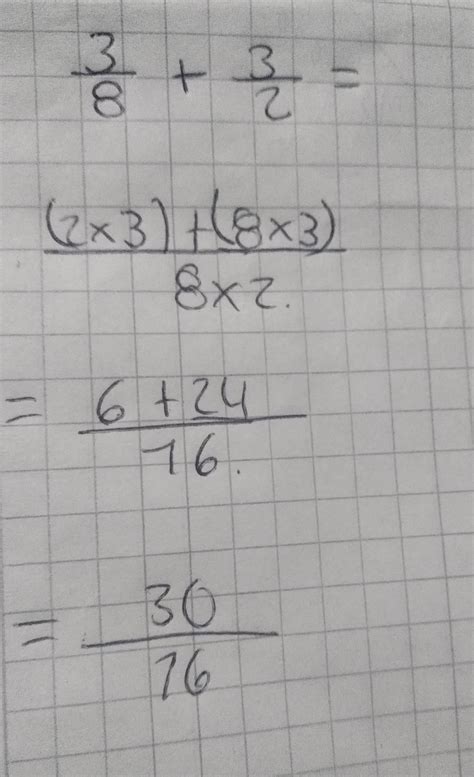 3/8 + 3/2 =
(2×3)+(8×3)
8×2.
= 6+24
16.
= 30
16